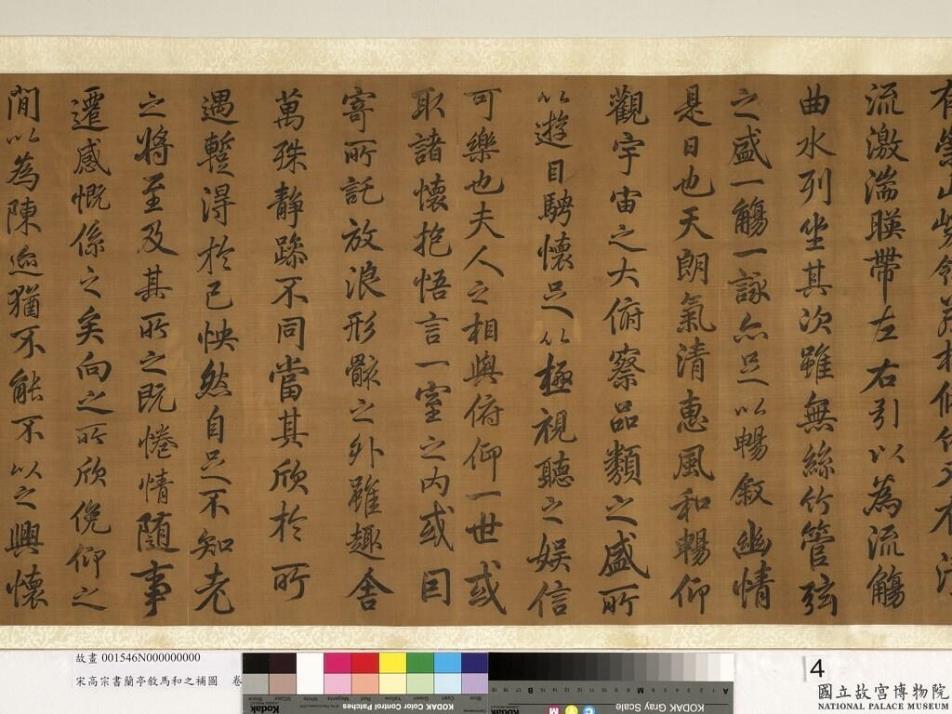 有崇山峻茂林脩竹又有清
流激湍暎帶左右引以為流觴
曲水列坐其次雖無絲竹管弦
之盛一觴一詠亦足以暢敘幽情
是日也天朗氣清惠風和暢仰
觀宇宙之大俯察品類之盛所
以遊目騁懷足以極視聽之娛信
可樂也夫人之相與俯仰一世或
取諸懷抱悟言一室之內或因
寄所託放浪形骸之外雖趣舍
萬殊靜躁不同當其欣於所
遇蹔得於己怏然自足不知老
之將至及其所之既惓情隨事
遷感慨係之矣向之所欣俛仰之
間以為陳迹猶不能不以之興懷
故畫 001546N000000000
宋高宗書蘭亭敘馬和之補圖 卷
KODAK Color Control Patches
KODAK Gray Scale
4
國立故宮博物院
NATIONAL PALACE MUSEUM